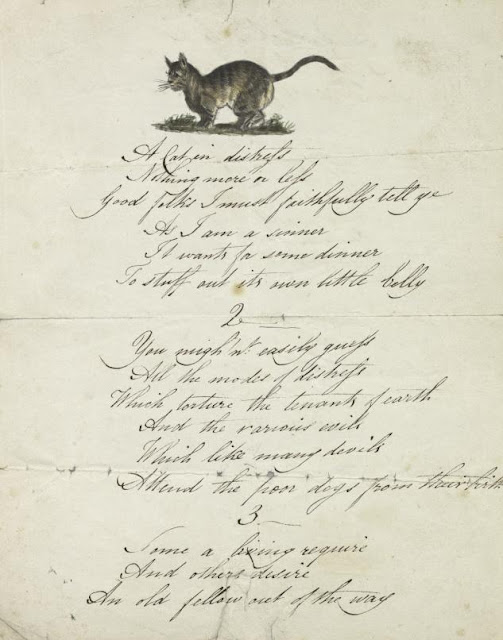 A Cat in distreſs
Nothing more or leſs
Good folks I must faithfully tell ye
As I am a sinner
It wants for some dinner
To stuff out its own little belly
2
You migh'nt easily gueſs
All the modes of distreſs
Which torture the tenants of earth
And the various evils
Which like many devils
Attend the poor dogs from their birth
3
Some a living require
And others desire
An old fellow out of the way